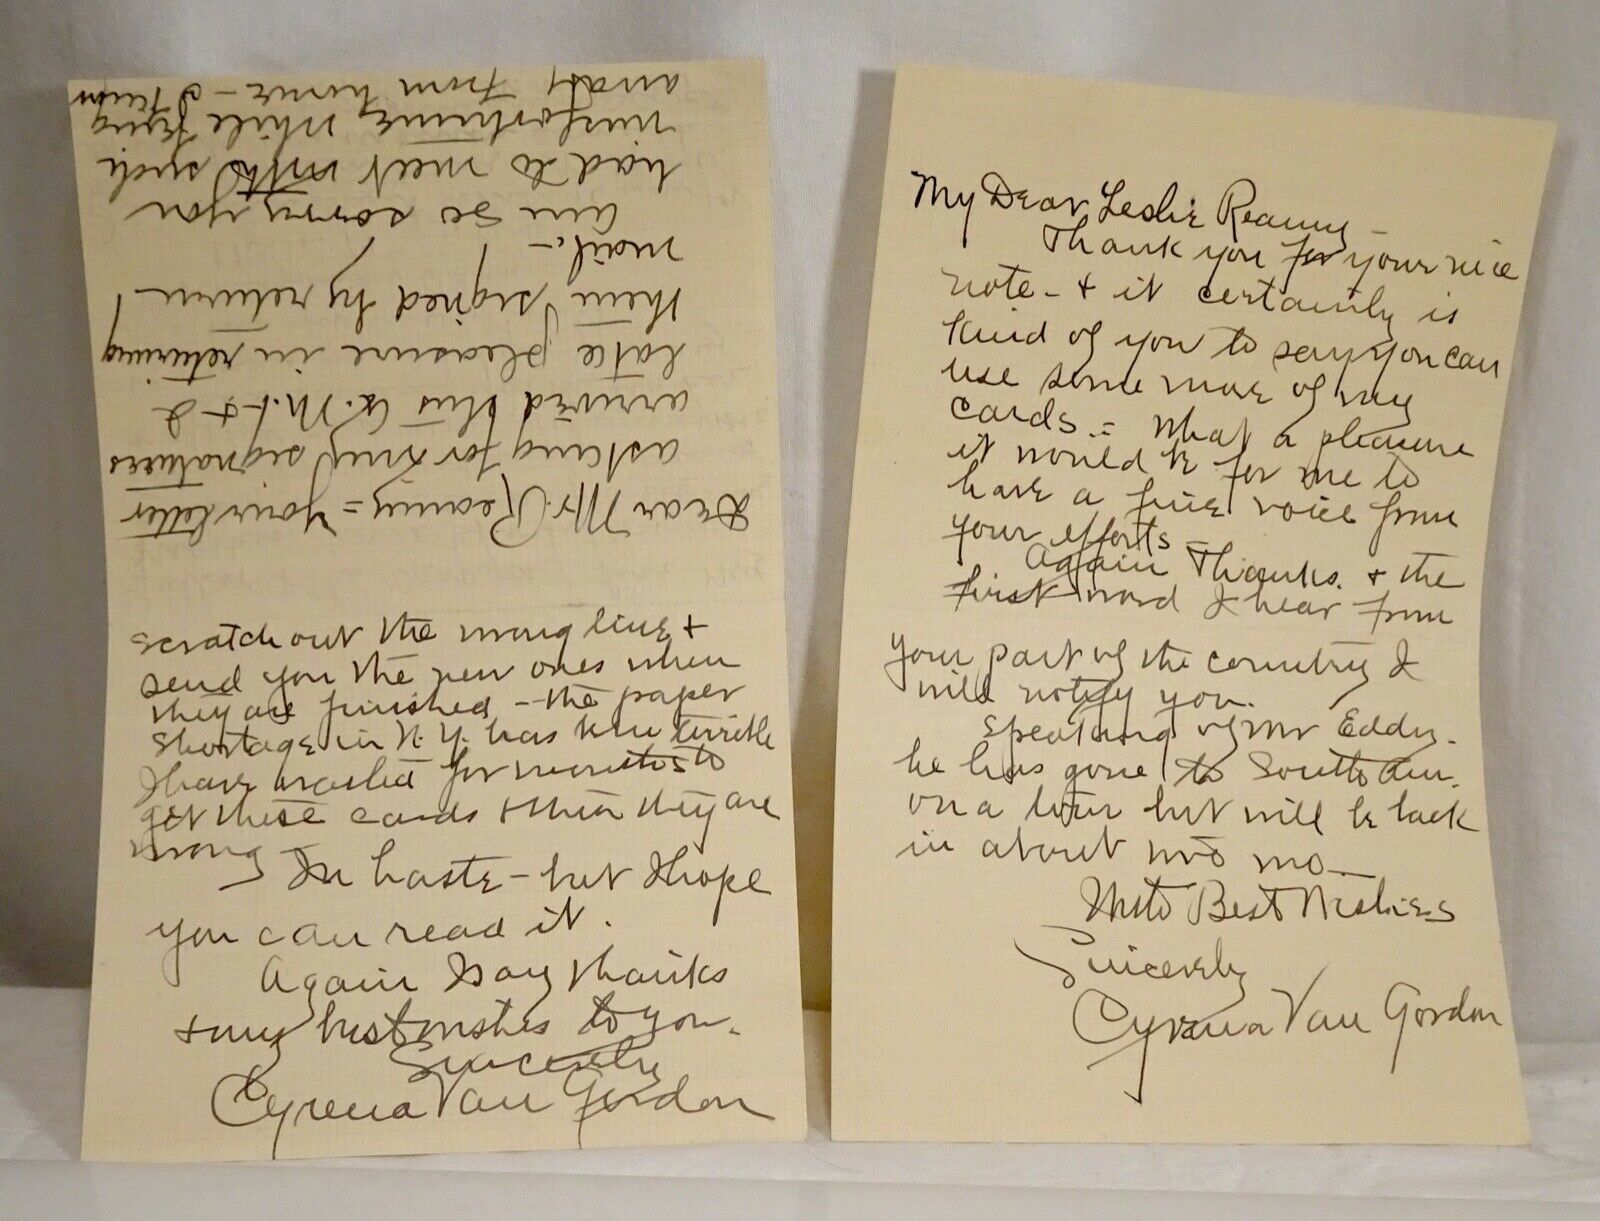 Dear Mr. Reamy = your letter
asking for my signatures
arrived this A.M. & I
take pleasure in returning
them signed by return
mail. -
am so sorry you
had to meet with such
misfortune, while being
away from home -
scratch out the wrong line &
send you the new ones when
they are finished - the paper
shortage in N.Y. has been terrible
I have waited for months to
get these cards & then they are
wrong -
In haste - but I hope
you can read it.
Again I say thanks
& my best wishes to you.
Sincerely
Cyrena Van Gordon
My Dear Leslie Reamy -
Thank you for your nice
note - & it certainly is
kind of you to say you can
use some more of my
cards. = What a pleasure
it would be for me to
have a fine voice from
your efforts -
Again Thanks. & the
first word I hear from
your part of the country I
will notify you.
Speaking of Mr Eddy -
he has gone to South Am.
on a tour but will be back
in about two mo. -
With Best Wishes
Sincerely
Cyrena Van Gordon